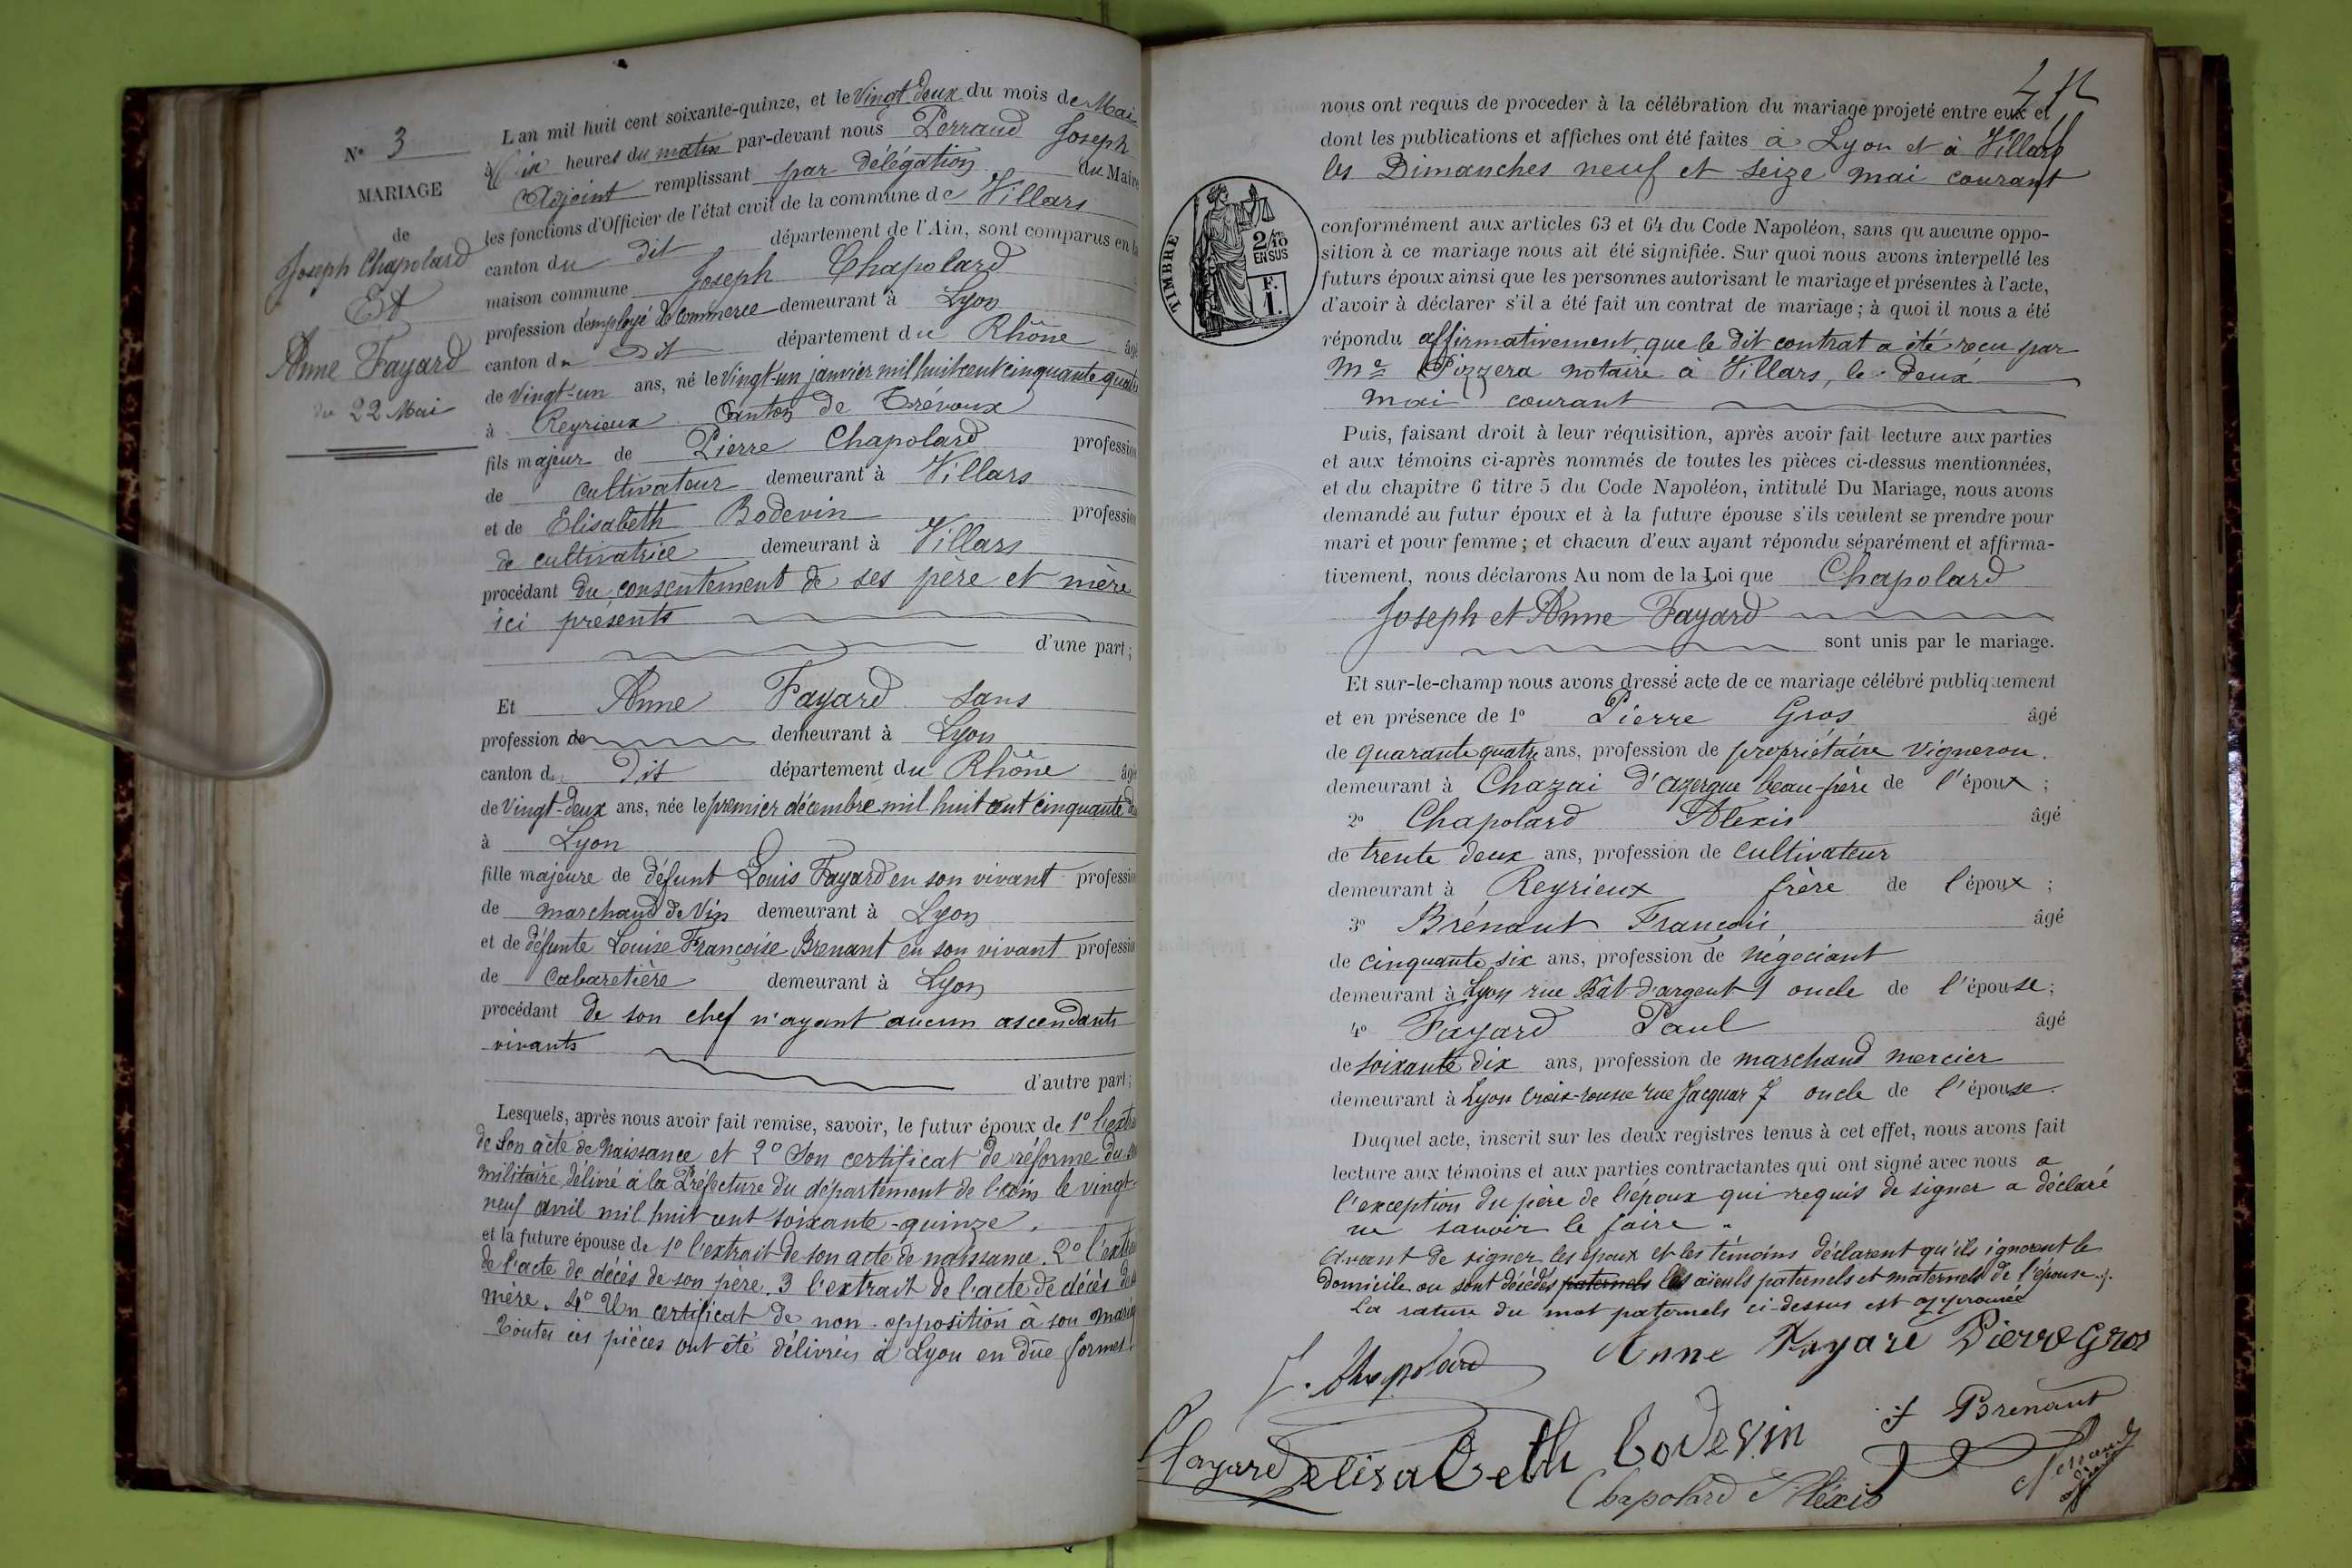 N° 3
MARIAGE
de
Joseph Chapolard
Et
Anne Fayard
du 22 Mai
L'an mil huit cent soixante-quinze, et le Vingt-deux du mois de Mai
à heures du matin par-devant nous Perraud Joseph
Adjoint remplissant par délégation du Maire
les fonctions d'Officier de l'état civil de la commune de Villars
canton du dit département de l'Ain, sont comparus en la
maison commune Joseph Chapolard
profession d'employé de commerce demeurant à Lyon
canton du dit département du Rhône âgé
de Vingt-un ans, né le Vingt-un janvier mil huit cent cinquante quatre
à Reyrieux Canton de Trévoux
fils majeur de Pierre Chapolard profession
de cultivateur demeurant à Villars
et de Elisabeth Bodevin profession
de cultivatrice demeurant à Villars
procédant du consentement de ses père et mère
ici présents
d'une part;
Et Anne Fayard sans
profession de demeurant à Lyon
canton du dit département du Rhône âgée
de Vingt-deux ans, née le premier décembre mil huit cent cinquante
à Lyon
fille majeure de défunt Louis Fayard en son vivant profession
de marchand de Vin demeurant à Lyon
et de défunte Louise Françoise Brenant en son vivant profession
de Cabaretière demeurant à Lyon
procédant de son chef n'ayant aucun ascendants
vivants
d'autre part;
Lesquels, après nous avoir fait remise, savoir, le futur époux de 1° l'extrait
de son acte de Naissance et 2° Son certificat de réforme du
militaire délivré à la Préfecture du département de l'ain le vingt-
neuf avril mil huit cent soixante-quinze.
et la future épouse de 1° l'extrait de son acte de naissance. 2° l'extrait
de l'acte de décès de son père. 3 l'extrait de l'acte de décès de
mère. 4° Un certificat de non-opposition à son mariage
Toutes ces pièces ont été délivrées à Lyon en dûe formes.
nous ont requis de proceder à la célébration du mariage projeté entre eux et
dont les publications et affiches ont été faites à Lyon et à Villars
les Dimanches neuf et seize mai courant
TIMBRE
2/10
EN SUS
F.
1.
conformément aux articles 63 et 64 du Code Napoléon, sans qu'aucune oppo-
sition à ce mariage nous ait été signifiée. Sur quoi nous avons interpellé les
futurs époux ainsi que les personnes autorisant le mariage et présentes à l'acte,
d'avoir à déclarer s'il a été fait un contrat de mariage; à quoi il nous a été
répondu affirmativement, que le dit contrat a été reçu par
Me Pizzera notaire a Villars, le deux
mai courant
Puis, faisant droit à leur réquisition, après avoir fait lecture aux parties
et aux témoins ci-après nommés de toutes les pièces ci-dessus mentionnées,
et du chapitre 6 titre 5 du Code Napoléon, intitulé Du Mariage, nous avons
demandé au futur époux et à la future épouse s'ils veulent se prendre pour
mari et pour femme; et chacun d'eux ayant répondu séparément et affirma-
tivement, nous déclarons Au nom de la Loi que Chapolard
Joseph et Anne Fayard
sont unis par le mariage.
Et sur-le-champ nous avons dressé acte de ce mariage célébré publiquement
et en présence de 1° Pierre Gros âgé
de quarante quatre ans, profession de propriétaire vigneron.
demeurant à Chazai d'azergue beau-frère de l'époux;
2° Chapolard Alexis âgé
de trente deux ans, profession de cultivateur
demeurant à Reyrieux frère de l'époux;
3° Brénant François âgé
de cinquante six ans, profession de négociant
demeurant à Lyon rue Bât-d'argent 1 oncle de l'épouse;
4° Fayard Paul âgé
de soixante dix ans, profession de marchand mercier
demeurant à Lyon Croix-rousse rue Jacquar 7 oncle de l'épouse.
Duquel acte, inscrit sur les deux registres tenus à cet effet, nous avons fait
lecture aux témoins et aux parties contractantes qui ont signé avec nous a
l'exception du père de l'époux qui requis de signer a déclaré
ne savoir le faire.
Avant de signer les époux et les témoins déclarent qu'ils ignorent le
domicile ou sont décédés paternels les aïeuls paternels et maternels de l'épouse./.
La rature du mot paternels ci-dessus est approuvée
J. Chapolard
Anne Fayard
Pierre Gros
Fayard
elisabeth bodevin
f Brénant
Chapolard Alexis
Perraud